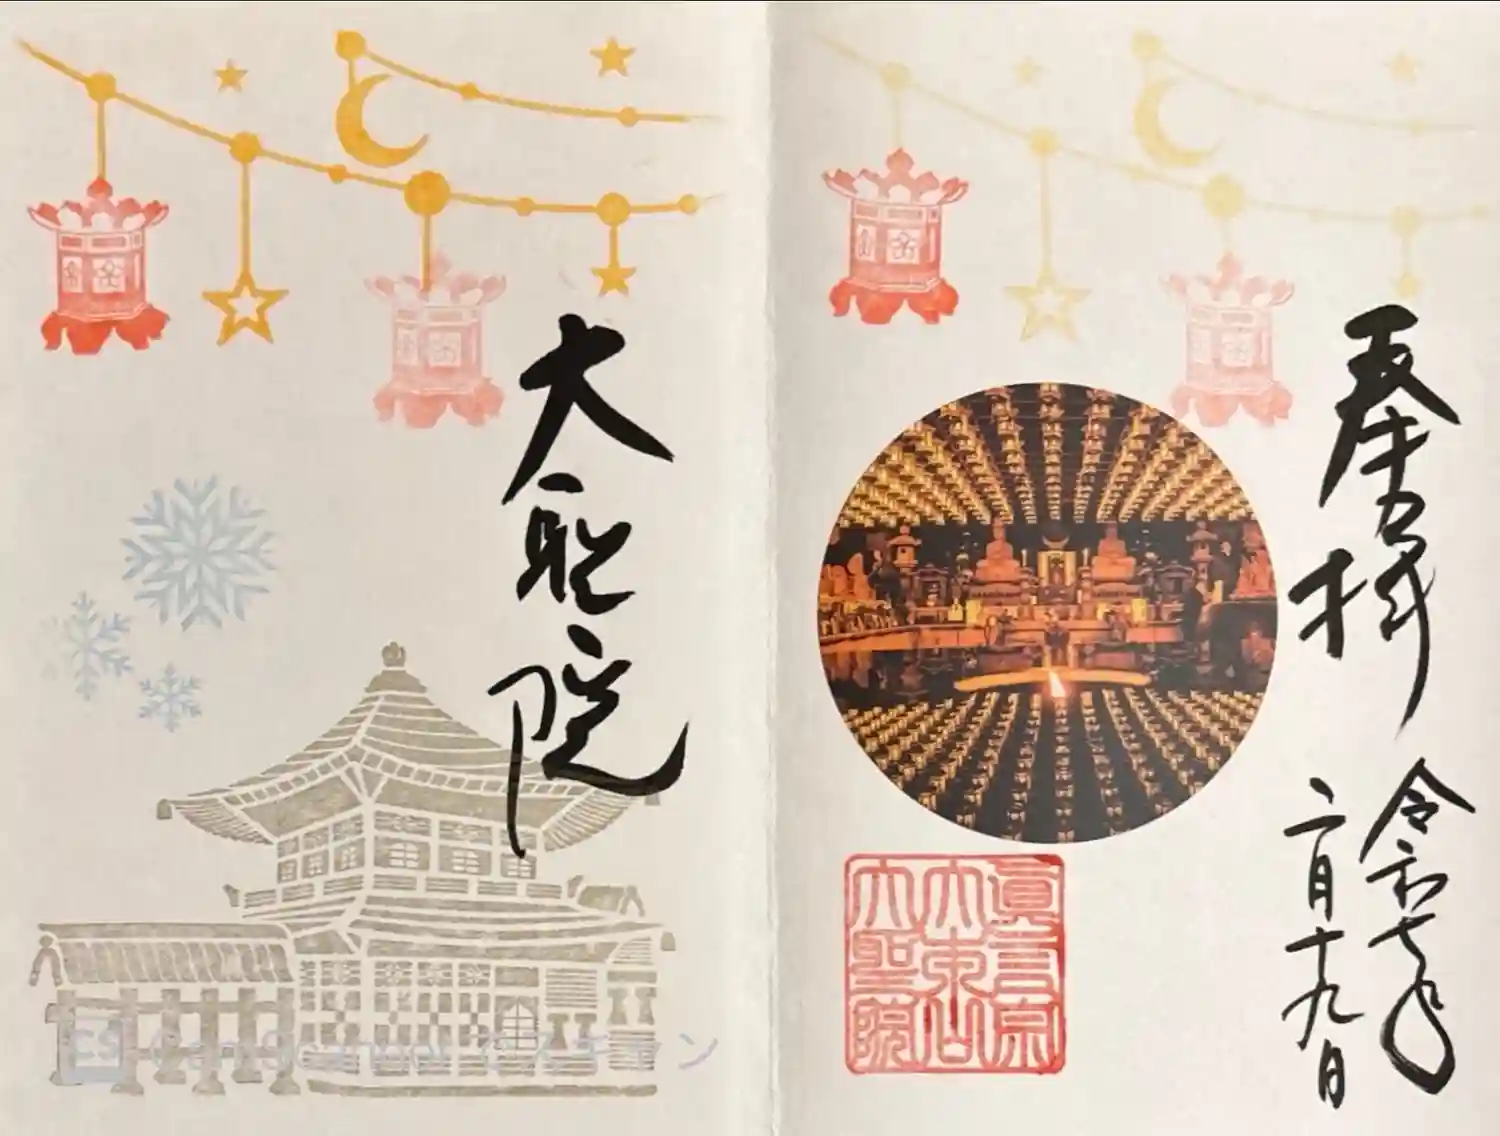 奉拝
令和七年
二月十九日
眞言宗
大本山
大聖院
大聖院
CS CamScanner でスキャン